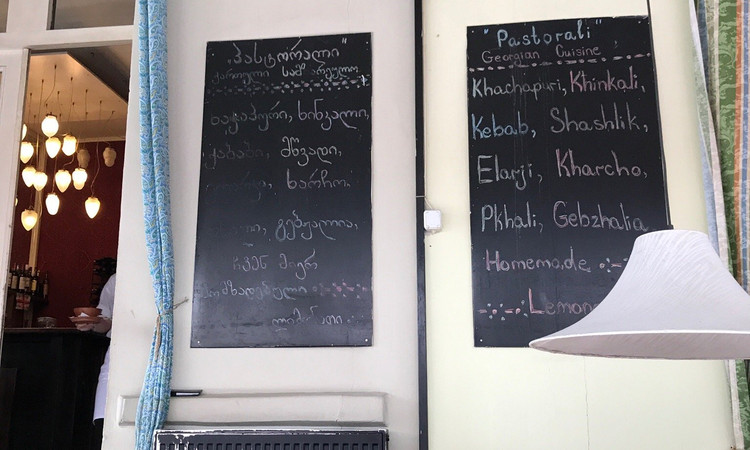 „პასტორალი"
ქართული სამზარეულო
ხაჭაპური, ხინკალი,
ქაბაბი, მწვადი,
ხარჩო,
გებჟალია,
ჩვენ მიერ
"Pastorali"
Georgian Cuisine
Khachapuri, Khinkali,
Kebab, Shashlik,
Elarji, Kharcho,
Pkhali, Gebzhalia
Homemade